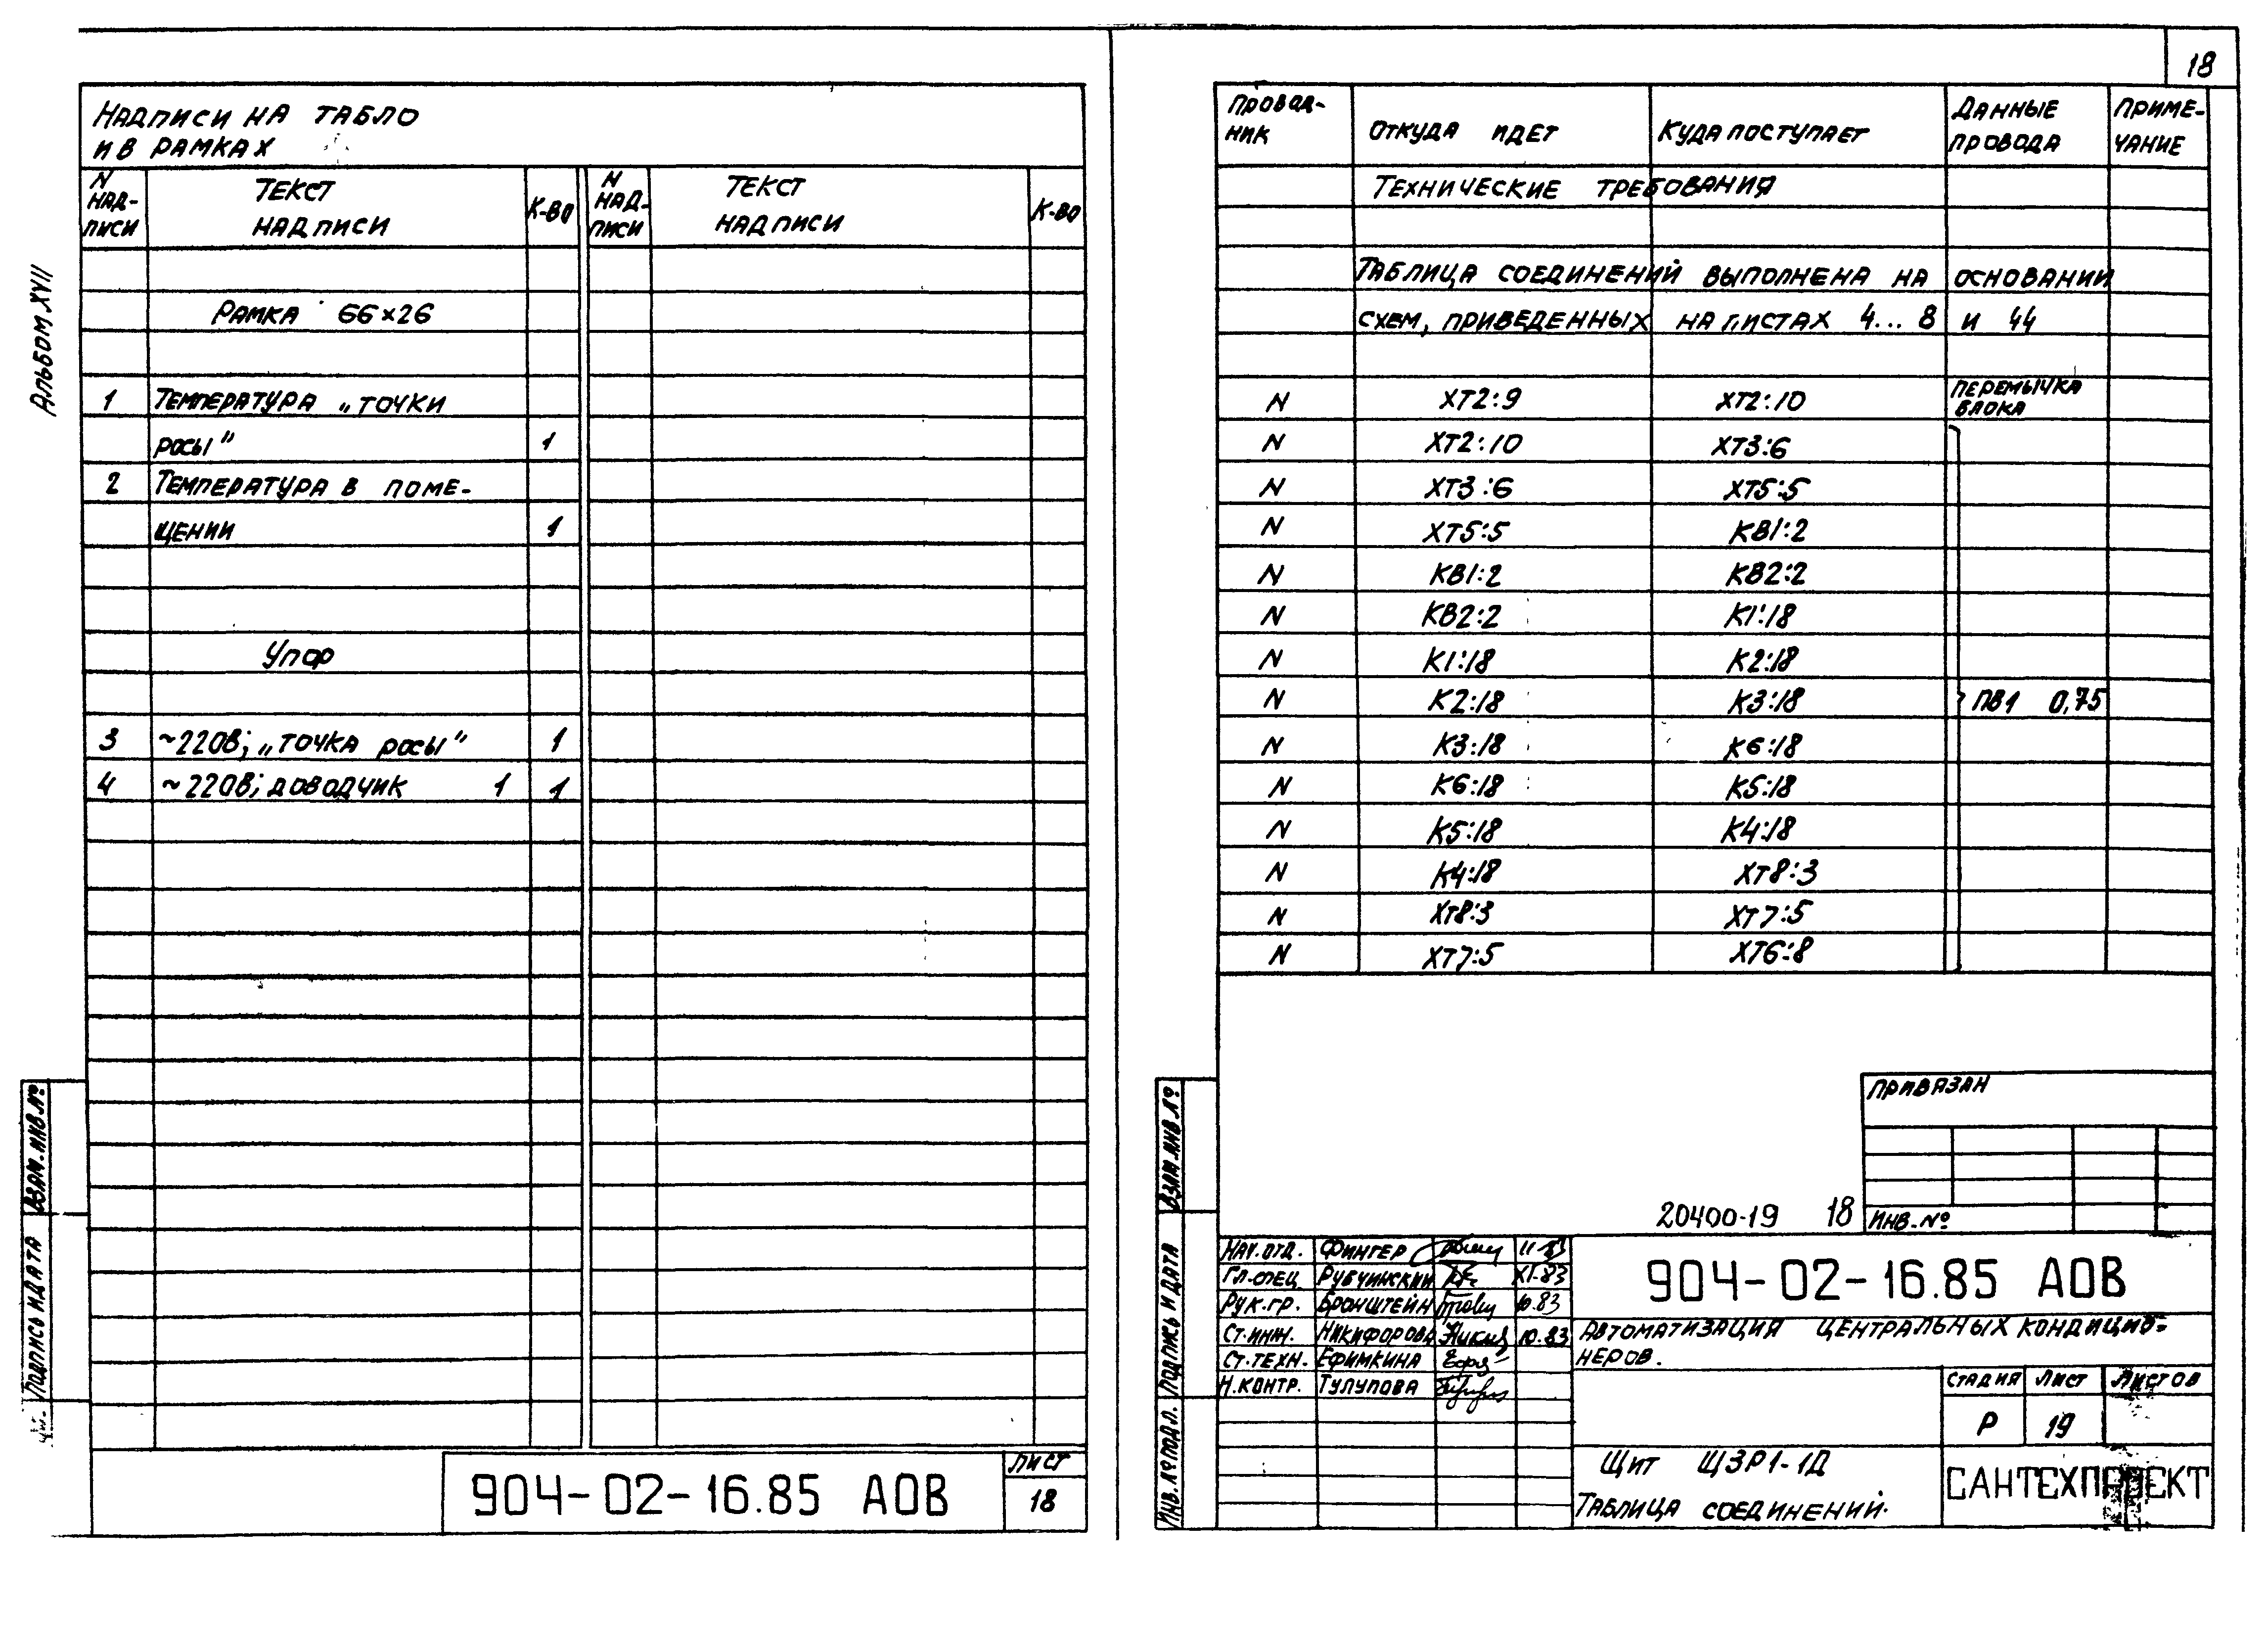 18
Альбом XVII
Надписи на табло
и в рамках
N надписи Текст надписи К-во N надписи Текст надписи К-во
Рамка 66×26
1 Температура „точки
росы" 1
2 Температура в поме-
щении 1
Упор
3 ~220В; „точка росы" 1
4 ~220В; доводчик 1 1
Взам. инв. №
Подпись и дата
904-02-16.85 АОВ
Лист
18
Провод-
ник Откуда идет Куда поступает Данные провода Приме-
чание
Технические требования
Таблица соединений выполнена на основании
схем, приведенных на листах 4... 8 и 44
N ХТ2:9 ХТ2:10 Перемычка блока
N ХТ2:10 ХТ3:6
N ХТ3:6 ХТ5:5
N ХТ5:5 КВ1:2
N КВ1:2 КВ2:2
N КВ2:2 К1:18
N К1:18 К2:18
N К2:18 К3:18 ПВ1 0,75
N К3:18 К6:18
N К6:18 К5:18
N К5:18 К4:18
N К4:18 ХТ8:3
N ХТ8:3 ХТ7:5
N ХТ7:5 ХТ6:8
Привязан
Инв. №
20400-19 18
Взам. инв. №
Подпись и дата
Инв. № подл.
Нач. отд. Фингер 11-83
Гл. спец Рубчинский XI-83
Рук. гр. Бронштейн 10.83
Ст. инж. Никифорова 10.83
Ст. техн. Ефимкина
Н. контр. Тулупова
904-02-16.85 АОВ
Автоматизация центральных кондицио-
неров.
Стадия Лист Листов
Р 19
Щит ЩЗР1-1Д
Таблица соединений.
САНТЕХПРОЕКТ